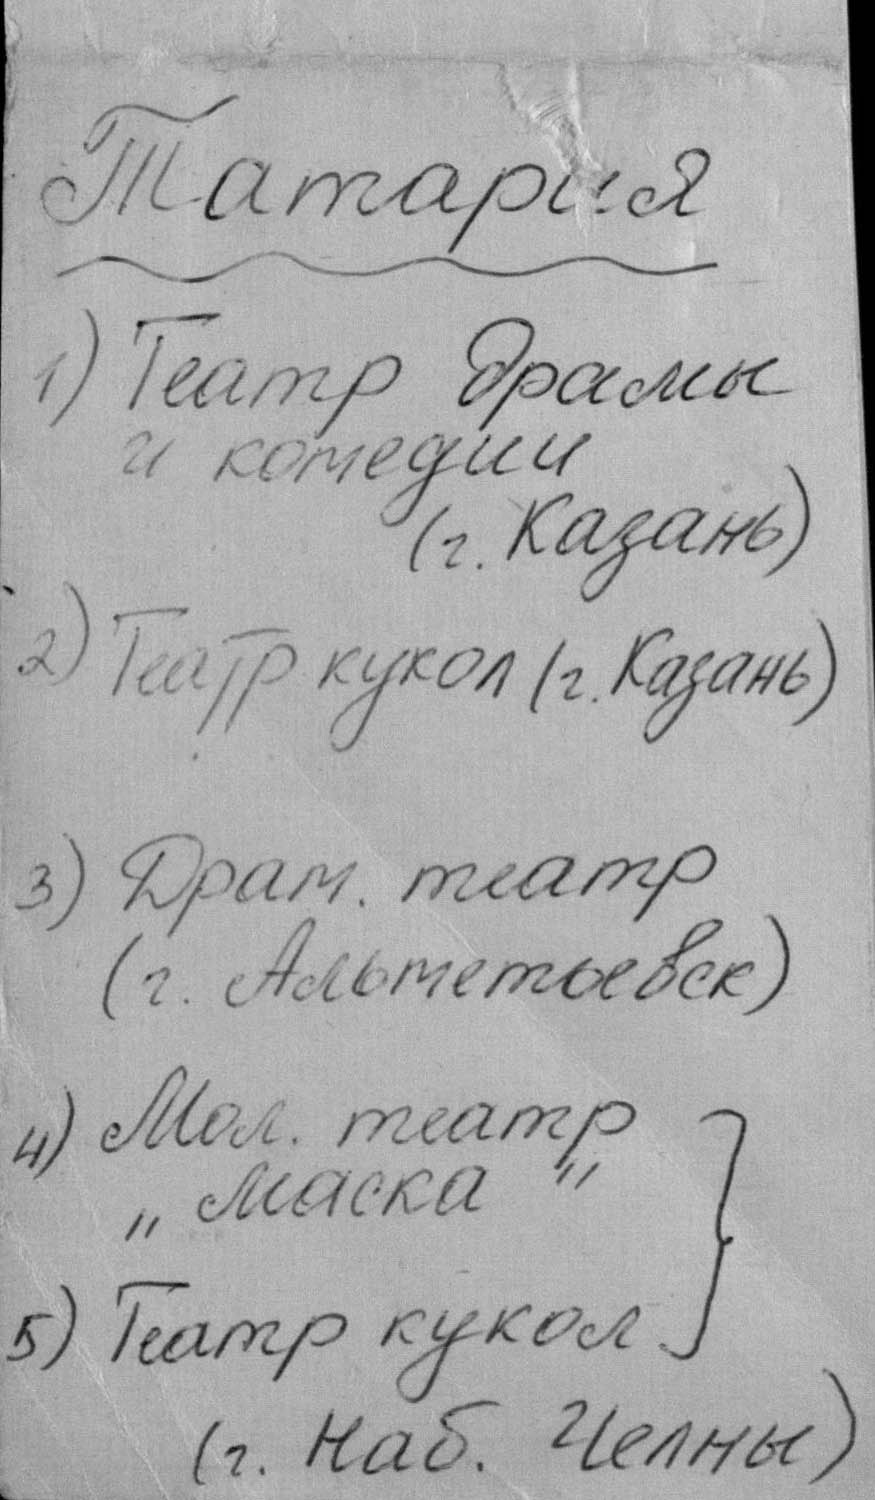 Татария
1) Театр драмы
и комедии
(г. Казань)
2) Театр кукол (г. Казань)
3) Драм. театр
(г. Альметьевск)
4) Мол. театр
„Маска"
5) Театр кукол
(г. Наб. Челны)